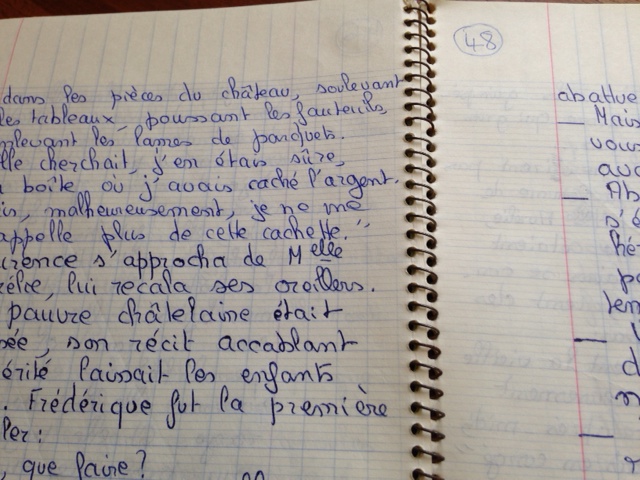 dans les pièces du château, soulevant
les tableaux, poussant les fauteuils,
enlevant les lames de parquets.
elle cherchait, j'en étais sûre,
boîte où j'avais caché l'argent.
malheureusement, je ne me
rappelle plus de cette cachette."
s'approcha de Melle
lui recala ses oreillers.
pauvre châtelaine était
son récit accablant
vérité laissait les enfants
Frédérique fut la première
que faire?
48
abattue
— Mais
vous
— Ab